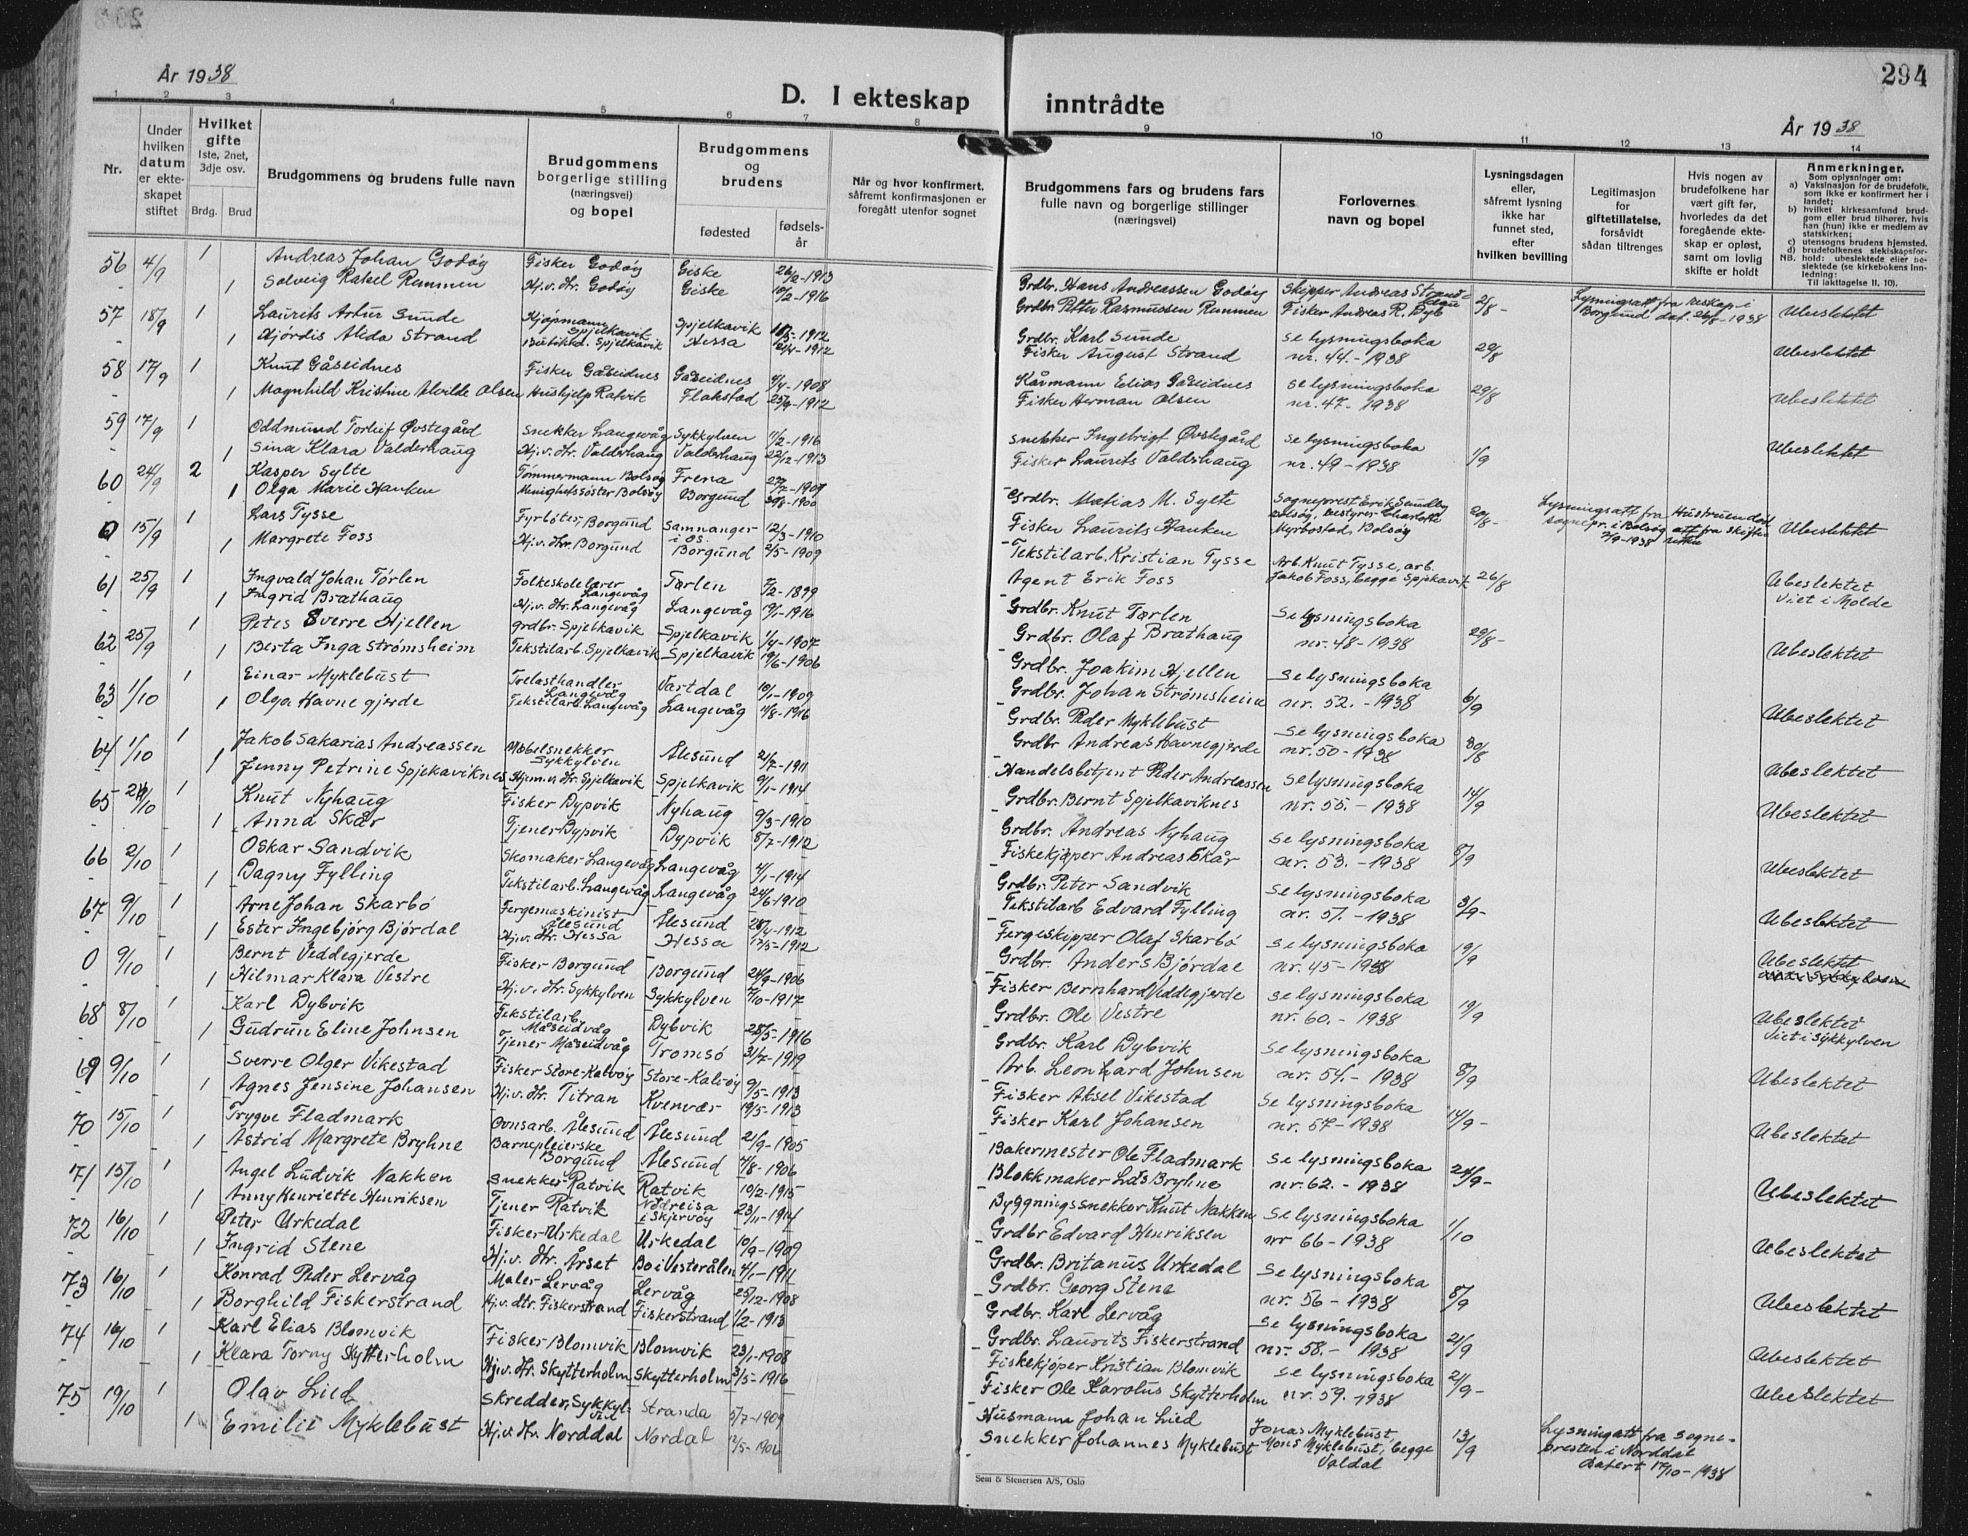 294
År 1938
D. I ekteskap inntrådte
År 1938
1 2 3 4 5 6 7 8 9 10 11 12 13 14
Nr.
Under hvilken datum er ekteskapet stiftet
Hvilket gifte 1ste, 2net, 3dje osv.
Brdg. Brud
Brudgommens og brudens fulle navn
Brudgommens borgerlige stilling (næringsvei) og bopel
Brudgommens og brudens
fødested
fødselsår
Når og hvor konfirmert, såfremt konfirmasjonen er foregått utenfor sognet
Brudgommens fars og brudens fars fulle navn og borgerlige stillinger (næringsvei)
Forlovernes navn og bopel
Lysningsdagen eller, såfremt lysning ikke har funnet sted, efter hvilken bevilling
Legitimasjon for giftetillatelse, forsåvidt sådan tiltrenges
Hvis nogen av brudefolkene har vært gift før, hvorledes da det foregående ekteskap er opløst, samt om lovlig skifte er holdt
Anmerkninger.
Som oplysninger om:
a) Vaksinasjon for de brudefolk, som ikke er konfirmert her i landet;
b) hvilket kirkesamfund brudgom eller brud tilhører, hvis han (hun) ikke er medlem av statskirken;
c) utensogns brudens hjemsted.
d) brudefolkenes slektskapsforhold: ubeslektede eller beslektede (se kirkebokens Innledning:
NB.
Til iakttagelse II, 10).
56 4/9 1 Andreas Johan Godøy Fisker Godøy Giske 26/12-1913 Grdbr. Hans Andreassen Godøy Skipper Andreas Strand- 2/8- Lysningsatt fra Ubeslektet
1 Solveig Rakel Remmen Hj.v. Hr. Godøy Giske 10/2-1916 Grdbr. Petter Rasmussen Remmen Fisker Andreas R. Dyb Borgund dat. 26/8-1938
57 18/9 1 Laurits Artur Sunde Kjøpmann Spjelkavik Spjelkavik 10/5-1912 Grdbr. Karl Sunde Se lysningsboka 29/8 Ubeslektet
1 Hjørdis Alida Strand Butikkd. Spjelkavik Hessa 12/4-1912 Fisker August Strand nr. 44.-1938
58 17/9 1 Knut Gåseidnes Fisker Gåseidnes Gåseidnes 4/4-1908 Kårmann Elias Gåseidnes se lysningsboka 29/8 Ubeslektet
1 Magnhild Kristine Alvilde Olsen Hushjelp Ratvik Flakstad 25/9-1912 Fisker Herman Olsen nr. 47-1938
59 17/9 1 Oddmund Torleif Øvstegård Snekker Langevåg Sykkylven 11/2-1916 Snekker Ingebrigt Øvstegård se lysningsboka 1/9 Ubeslektet
1 Sina Klara Valderhaug Hj.v. Hr. Valderhaug Valderhaug 22/12-1913 Fisker Laurits Valdshaug nr. 49-1938
60 24/9 2 Kasper Sylte Tømmermann Bolsøy Frena 27/7-1907 Grdbr. Matias M. Sylte Sogneprest Erik Sundby 20/8- Lysningsatt fra Hustruen død Ubeslektet
1 Olga Marie Hanken Menighetssøster Bolsøy Borgund 30/8-1900 Fisker Laurits Hanken Bolsøy, bestyrer Charlotte Myrbostad, Bolsøy sognepr. i Bolsøy att fra skifteretten 2/9-1938
0 15/9 1 Lars Tysse Fyrbøter, Borgund Samnanger i Os. 12/3-1910 Tekstilarb. Kristian Tysse Arb. Knut Tysse, arb. 26/8 Ubeslektet
1 Margrete Foss Hj.v. Hr. Borgund Borgund 2/5-1909 Agent Erik Foss Jakob Foss, begge Spjelkavik Viet i Molde
61 25/9 1 Ingvald Johan Tørlen Folkeskolelærer Langevåg Tærlen 7/2-1899 Grdbr. Knut Tærlen Se lysningsboka 29/8- Ubeslektet
1 Ingrid Brathaug Hj.v. Hr. Langevåg Langevåg 19/1-1916 Grdbr. Olaf Brathaug nr. 48-1938
62 25/9 1 Peter Sverre Hjellen grdbr. Spjelkavik Spjelkavik 1/4-1907 Grdbr. Joakim Hjellen Se lysningsboka 6/9 Ubeslektet
1 Berta Inga Strømsheim Tekstilarb. Spjelkavik Spjelkavik 19/6-1906 Grdbr. Johan Strømsheim nr. 52.-1938
63 1/10 1 Einar Myklebust Trelasthandler Langevåg Vartdal 10/1-1909 Grdbr. Peder Myklebust Se lysningsboka 30/8 Ubeslektet
1 Olga Havnegjerde Tekstilarb. Langevåg Langevåg 11/8-1916 Grdbr Andreas Havnegjerde nr. 50-1938
64 1/10 1 Jakob Sakarias Andreassen Møbelsnekker Sykkylven Ålesund 21/7-1911 Handelsbetjent Peder Andreassen se lysningsboka 14/9 Ubeslektet
1 Jenny Petrine Spjelkaviknes Hjemmev. Hr. Spjelkavik Spjelkavik 9/1-1914 Grdbr. Bernt Spjelkaviknes nr. 55.-1938
65 1 Knut Nyhaug Fisker Dypvik Nyhaug 9/3-1910 Grdbr. Andreas Nyhaug Se lysningsboka 8/9 Ubeslektet
1 Anna Skår Tjener Dypvik Dypvik 8/7-1912 Fiskekjøper Andreas Skår nr. 53.-1938
66 2/10 1 Oskar Sandvik Skomaker Langevåg Langevåg 4/1-1914 Grdbr. Peter Sandvik Se lysningsboka 3/9- Ubeslektet
1 Dagny Fylling Tekstilarb. Langevåg Langevåg 24/6-1910 Tekstilarb Edvard Fylling nr. 51.-1938
67 9/10 1 Arne Johan Skarbø Fergemaskinist Ålesund Ålesund 28/4-1912 Fergeskipper Olaf Skarbø Se lysningsboka 19/9 Ubeslektet
1 Ester Ingebjørg Bjørdal Hj.v. Hr. Hessa Hessa 17/5-1912 Grdbr. Anders Bjørdal nr. 45-1938
0 9/10 1 Bernt Veddegjerde Fisker Borgund Borgund 24/9-1906 Fisker Bernhard Veddegjerde Se lysningsboka 19/9 Ubeslektet
1 Hilmar Klara Vestre Hj.v. Hr. Sykkylven Sykkylven 7/10-1917 Grdbr. Ole Vestre nr. 60.-1938 Viet i Sykkylven
68 8/10 1 Karl Dybvik Tekstilarb. Måseidvåg Dybvik 28/5-1916 Grdbr. Karl Dybvik Se lysningsboka 8/9 Ubeslektet
1 Gudrun Eline Johnsen Tjener Måseidvåg Tromsø 31/7-1919 Arb. Leonhard Johnsen nr. 54.-1938
69 9/10 1 Sverre Olger Vikestad Fisker Store-Kalvøy Store-Kalvøy 9/5-1913 Fisker Aksel Vikestad Se lysningsboka 14/9- Ubeslektet
1 Agnes Jensine Johansen Hj.v. Hr. Titran Kvenvær 19/5-1913 Fisker Karl Johansen nr. 57-1938
70 15/10 1 Trygve Fladmark Ovnsarb. Ålesund Ålesund 21/9-1905 Bakermester Ole Fladmark Se lysningsboka 24/9- Ubeslektet
1 Astrid Margrete Bryhne Barnepleierske Borgund Ålesund 4/8-1906 Blokkmaker Bryhne nr. 62.-1938
71 15/10 1 Angel Ludvik Nakken Snekker Ratvik Ratvik 10/2-1915 Byggningssnekker Knut Nakken Se lysningsboka 1/10 Ubeslektet
1 Anny Henriette Henriksen Tjener Ratvik Nordreisa i Skjervøy 23/11-1914 Grdbr Edvard Henriksen nr 66-1938
72 16/10 1 Peter Urkedal Fisker Urkedal Urkedal 10/9-1909 Grdbr. Britanus Urkedal Se lysningsboka 8/9 Ubeslektet
1 Ingrid Stene Hj.v. Hr. Årset Bø i Vesterålen 4/1-1911 Grdbr. Georg Stene nr. 56-1938
73 16/10 1 Konrad Peder Lervåg Maler Lervåg Lervåg 25/12-1908 Grdbr. Karl Lervåg Se lysningsboka 21/9 Ubeslektet
1 Borghild Fiskerstrand Hj.v. dtr. Fiskerstrand Fiskerstrand 1/2-1913 Grdbr. Laurits Fiskerstrand nr. 58.-1938
74 16/10 1 Karl Elias Blomvik Fisker Blomvik Blomvik 23/1-1908 Fiskekjøper Kristian Blomvik se lysningsboka 21/9- Ubeslektet
1 Klara Torny Skytterholm Hj.v. Hr. Skytterholm Skytterholm 3/5-1916 Fisker Ole Karolus Skytterholm nr. 59.-1938
75 19/10 1 Olav Lied Skredder, Sykkylven Stranda 5/7-1909 Husmann Johan Lied Jonas Myklebust, 13/9 Lysningatt fra sogne- Ubeslektet
1 Emilie Myklebust Hj.v. Hr. Norddal Nordal 12/5- Snekker Johannes Myklebust Mons Myklebust, begge Valdal presten i Norddal datert 17/10-1938
Sem & Stenersen A/S, Oslo